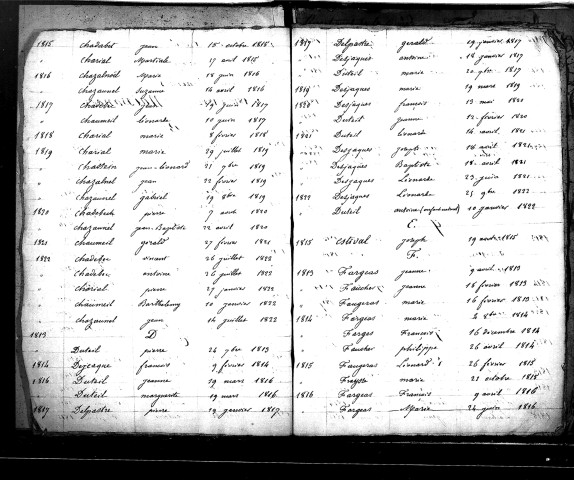 1815 Chadabet jean 15 octobre 1815
" Charial Martiale 17 avril 1815
1816 Chazalnoël Marie 18 juin 1816
" Chazaunel Suzanne 14 avril 1816
1817 Chadebec juin 1817
" Chaumeil Leonard 10 juin 1817
1818 Charial marie 8 fevrier 1818
1819 Charial marie 29 juillet 1819
" Chastrein jean Leonard 21 9bre 1819
" Chazalnel jean 22 fevrier 1819
" Chazaunel gabriel 19 8bre 1819
1820 Chadebech pierre 7 août 1820
" Chazaunel jean Baptiste 22 avril 1820
1821 Chaumeil gerald 27 fevrier 1821
1822 Chadebec vincent 26 juillet 1822
" Chadebec antoine 26 juillet 1822
" Chorial pierre 27 janvier 1822
" Chaumeil Barthelemy 10 janvier 1822
" Chazaunel jean 14 juillet 1822
1813 D
" Duteil pierre 24 9bre 1813
1814 Dezcagne francois 9 fevrier 1814
1816 Duteil jeanne 19 mars 1816
" Duteil marguerite 19 mars 1816
1817 Delpastre pierre 19 janvier 1817
1817 Delpastre gerald 19 janvier 1817
" Desjaques antoine 18 janvier 1817
" Duteil marie 20 9bre 1817
1819 Desjaques marie 19 mars 1819
1820 Desjaques francois 13 mai 1820
" Duteil jeanne 12 fevrier 1820
1821 Duteil Leonard 14 avril 1821
" Desjaques joseph 16 avril 1821
" Desjaques Baptiste 18 avril 1821
" Desjaques Léonarde 23 juin 1821
1822 Desjaques Léonarde 25 9bre 1822
" Duteil antoine (enfant naturel) 10 janvier 1822
E.
1815 Estéval joseph 19 août 1815
F.
1813 Fargeas jeanne 9 avril 1813
" Faucher jeanne 16 fevrier 1813
" Faugeras marie 16 fevrier 1813
1814 Fargeas marie 2 8bre 1814
" Farges Francois 16 decembre 1814
" Faucher philippe 26 avril 1814
1815 Faugeras Léonard 1 26 fevrier 1815
" Frayße marie 21 octobre 1815
1816 Fargeas Francois 9 avril 1816
" Fargeas Marie 24 juin 1816